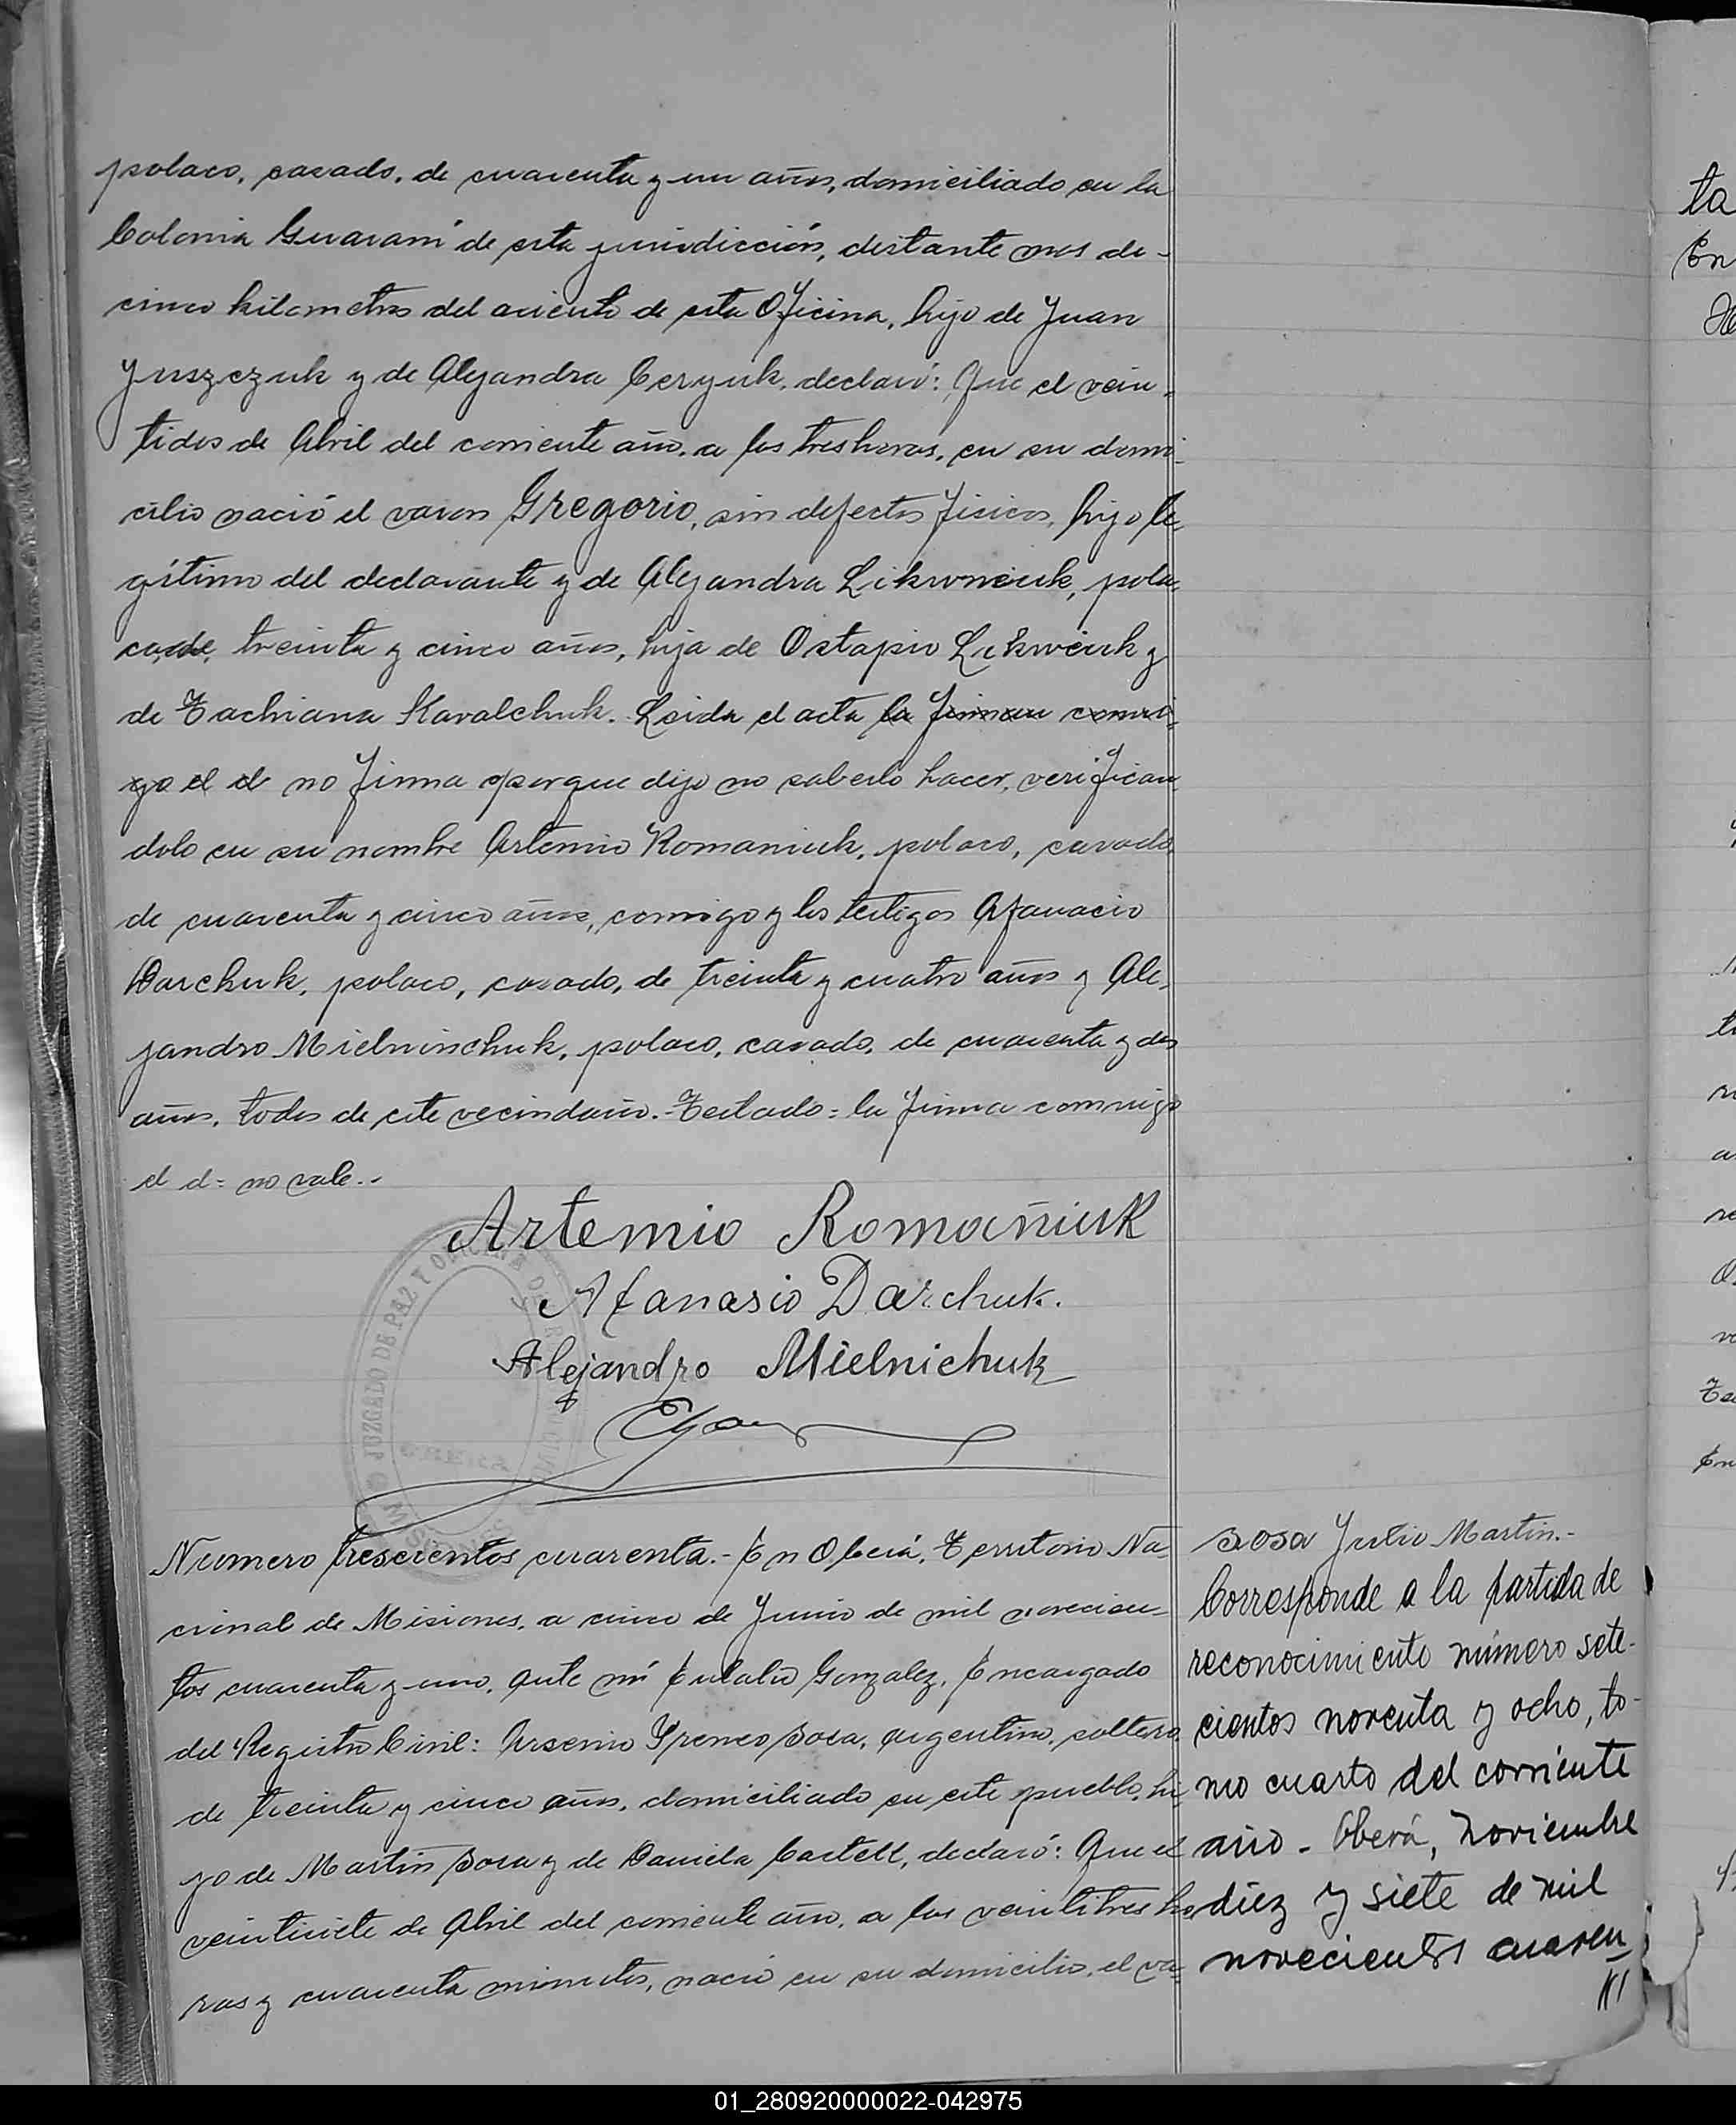 polaco, casado, de cuarenta y un años, domiciliado en la
Colonia Guaraní de esta jurisdicción, distante mas de-
cinco kilometros del asiento de esta Oficina, hijo de Juan
Juszczuk y de Alejandra Ceryuk, declaró: Que el vein-
tidos de Abril del corriente año, a las tres horas, en su domi-
cilio nació el varon Gregorio, sin defectos fisicos, hijo le-
gítimo del declarante y de Alejandra Likwneiuk, pola-
ca, de, treinta y cinco años, hija de Ostapio Likwciuk y
de Tachiana Kavalchuk. Leida el acta la firman conmi-
go el d no firma porque dijo no saberlo hacer, verifican-
dolo en su nombre Artemio Romaniuk, polaco, casado,
de cuarenta y cinco años, conmigo y los testigos Afanacio
Darchuk, polaco, casado, de treinta y cuatro años y Ale-
jandro Mielninchuk, polaco, casado, de cuarenta y dos
años, todos de este vecindario.- Testado = la firma conmigo
el d = no vale.-
Artemio Romañiuk
Afanasio Darchuk.
Alejandro Mielnichuk
JUZGADO DE PAZ Y OFICINA
OBERA
Numero trescientos cuarenta.- En Oberá, Territorio Na-
cional de Misiones, a cinco de Junio de mil novecien-
tos cuarenta y uno, ante mí Eulalio Gonzalez, Encargado
del Registro Civil: Arsenio Yreneo Sosa, argentino, soltero,
de treinta y cinco años, domiciliado en este pueblo, hi-
jo de Martin Sosa y de Daniela Castell, declaró: Que el
veintisiete de Abril del corriente año, a las veintitres ho-
ras y cuarenta minutos, nació en su domicilio, el va-
Sosa Julio Martin.-
Corresponde a la partida de
reconocimiento número sete-
cientos noventa y ocho, to-
mo cuarto del corriente
año - Oberá, Noviembre
diez y siete de mil
novecientos cuaren
///